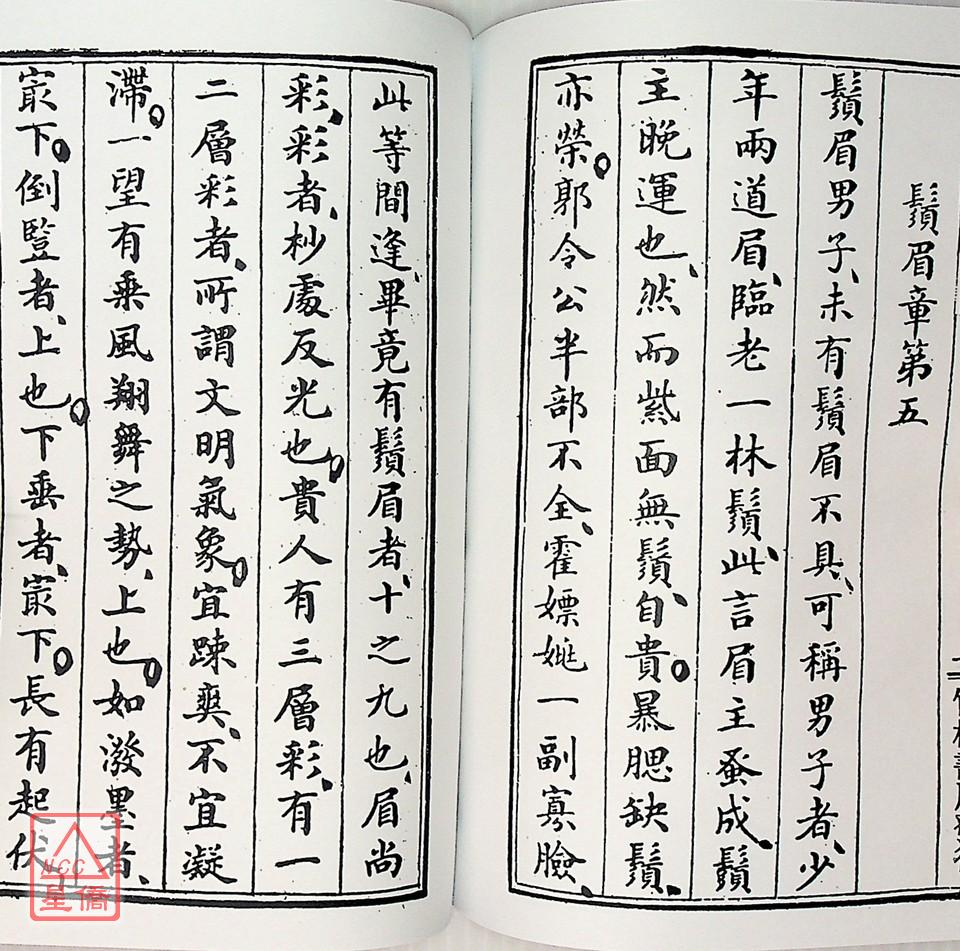 鬚眉章第五
鬚眉男子、未有鬚眉不具、可稱男子者、少
年兩道眉、臨老一林鬚、此言眉主蚤成、鬚
主晚運也、然而紫面無鬚、自貴。暴腮缺鬚、
亦榮。郭令公半部不全、霍嫖姚一副寡臉、
此等間逢、畢竟有鬚眉者、十之九也、眉尚
彩、彩者、杪處反光也。貴人有三層彩、有一
二層彩者、所謂文明氣象。宜踈爽、不宜凝
滯。一望有乘風翔舞之勢、上也。如潑墨者、
㝡下。倒豎者、上也。下垂者、㝡下。長有起伏、
NCC
星僑